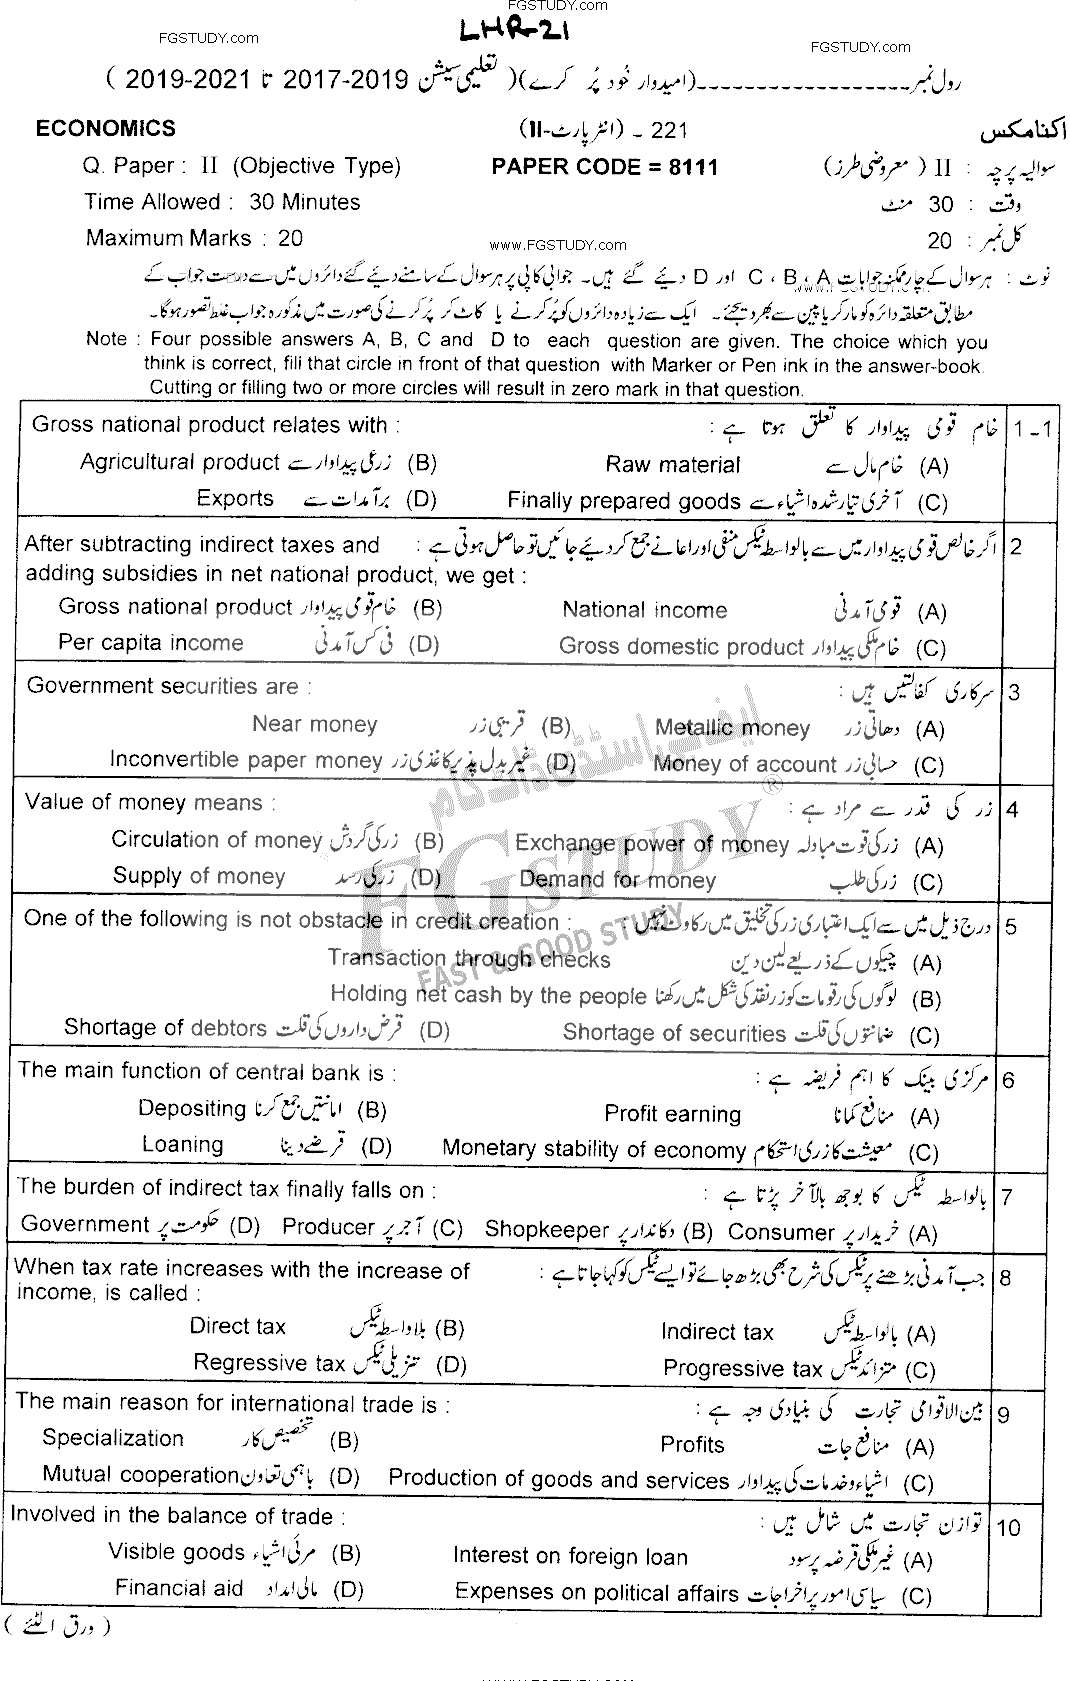 FGSTUDY.com
LHR-21
FGSTUDY.com
FGSTUDY.com
رول نمبر۔۔۔۔۔۔۔۔۔۔۔۔۔۔۔۔۔۔(امیدوار خود پُر کرے)( تعلیمی سیشن 2017-2019 تا 2019-2021 )
ECONOMICS 221 ۔ (انٹر پارٹ-II) اکنامکس
Q. Paper : II (Objective Type) PAPER CODE = 8111 سوالیہ پرچہ : II ( معروضی طرز)
Time Allowed : 30 Minutes وقت : 30 منٹ
Maximum Marks : 20 www.FGSTUDY.com کل نمبر : 20
نوٹ : ہر سوال کے چار ممکنہ جوابات A ، B ، C اور D دیئے گئے ہیں۔ جوابی کاپی پر ہر سوال کے سامنے دیئے گئے دائروں میں سے درست جواب کے
مطابق متعلقہ دائرہ کو مارکر یا پین سے بھر دیجئے۔ ایک سے زیادہ دائروں کو پُر کرنے یا کاٹ کر پُر کرنے کی صورت میں مذکورہ جواب غلط تصور ہوگا۔
Note : Four possible answers A, B, C and D to each question are given. The choice which you
think is correct, fill that circle in front of that question with Marker or Pen ink in the answer-book.
Cutting or filling two or more circles will result in zero mark in that question.
Gross national product relates with : خام قومی پیداوار کا تعلق ہوتا ہے : 1-1
Agricultural product زرعی پیداوار سے (B) Raw material خام مال سے (A)
Exports برآمدات سے (D) Finally prepared goods آخری تیار شدہ اشیاء سے (C)
After subtracting indirect taxes and اگر خالص قومی پیداوار میں سے بالواسطہ ٹیکس منفی اور اعانے جمع کر دیئے جائیں تو حاصل ہوتی ہے : 2
adding subsidies in net national product, we get :
Gross national product خام قومی پیداوار (B) National income قومی آمدنی (A)
Per capita income فی کس آمدنی (D) Gross domestic product خام ملکی پیداوار (C)
Government securities are : سرکاری کفالتیں ہیں : 3
Near money قریبی زر (B) Metallic money دھاتی زر (A)
Inconvertible paper money غیر بدل پذیر کاغذی زر (D) Money of account حسابی زر (C)
Value of money means : زر کی قدر سے مراد ہے : 4
Circulation of money زر کی گردش (B) Exchange power of money زر کی قوت مبادلہ (A)
Supply of money زر کی رسد (D) Demand for money زر کی طلب (C)
One of the following is not obstacle in credit creation : درج ذیل میں سے ایک اعتباری زر کی تخلیق میں رکاوٹ نہیں : 5
Transaction through checks چیکوں کے ذریعے لین دین (A)
Holding net cash by the people لوگوں کی رقومات کو زر نقد کی شکل میں رکھنا (B)
Shortage of debtors قرض داروں کی قلت (D) Shortage of securities ضمانتوں کی قلت (C)
The main function of central bank is : مرکزی بینک کا اہم فریضہ ہے : 6
Depositing امانتیں جمع کرنا (B) Profit earning منافع کمانا (A)
Loaning قرضے دینا (D) Monetary stability of economy معیشت کا زری استحکام (C)
The burden of indirect tax finally falls on : بالواسطہ ٹیکس کا بوجھ بالآخر پڑتا ہے : 7
Government حکومت پر (D) Producer آجر پر (C) Shopkeeper دکاندار پر (B) Consumer خریدار پر (A)
When tax rate increases with the increase of جب آمدنی بڑھنے پر ٹیکس کی شرح بھی بڑھ جائے تو ایسے ٹیکس کو کہا جاتا ہے : 8
income, is called :
Direct tax بلاواسطہ ٹیکس (B) Indirect tax بالواسطہ ٹیکس (A)
Regressive tax تنزیلی ٹیکس (D) Progressive tax متزائد ٹیکس (C)
The main reason for international trade is : بین الاقوامی تجارت کی بنیادی وجہ ہے : 9
Specialization تخصیص کار (B) Profits منافع جات (A)
Mutual cooperation باہمی تعاون (D) Production of goods and services اشیاء و خدمات کی پیداوار (C)
Involved in the balance of trade : توازن تجارت میں شامل ہیں : 10
Visible goods مرئی اشیاء (B) Interest on foreign loan غیر ملکی قرضہ پر سود (A)
Financial aid مالی امداد (D) Expenses on political affairs سیاسی امور پر اخراجات (C)
( ورق الٹئے )
ایف جی اسٹڈی ڈاٹ کام
FGSTUDY ®
FAST & GOOD STUDY